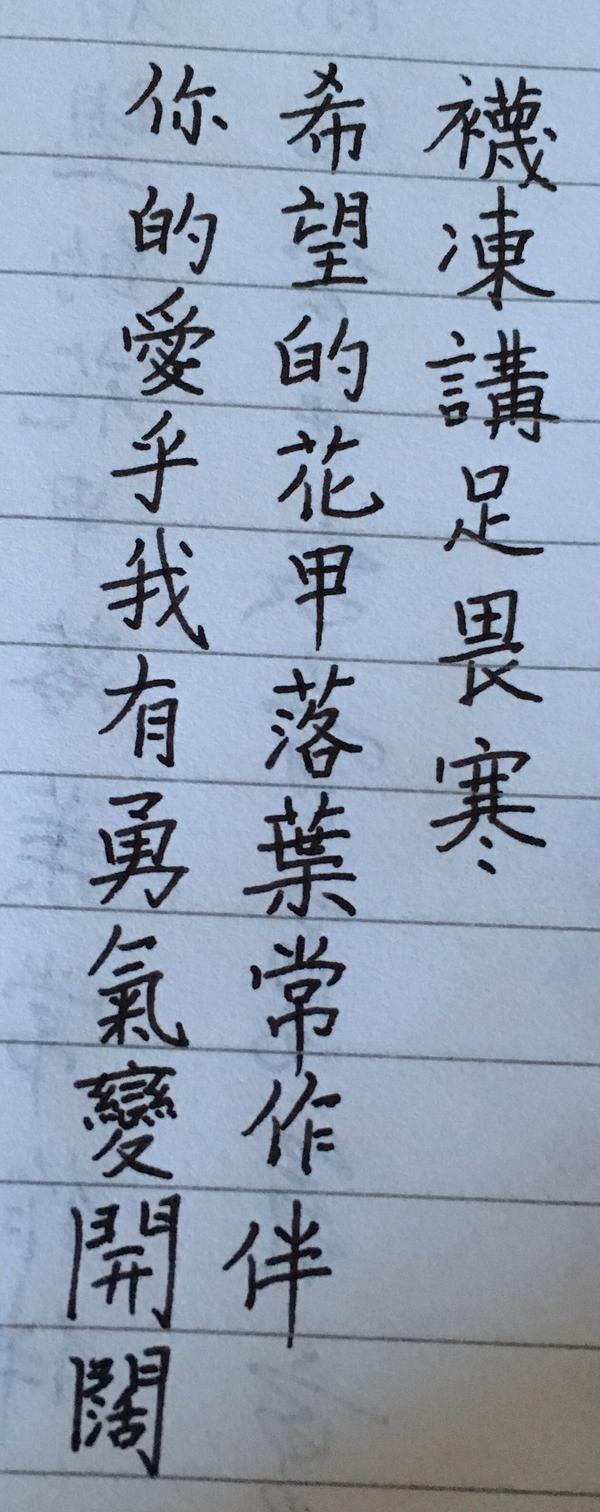 襪凍講足畏寒
希望的花甲落葉常作伴
你的愛乎我有勇氣變開闊